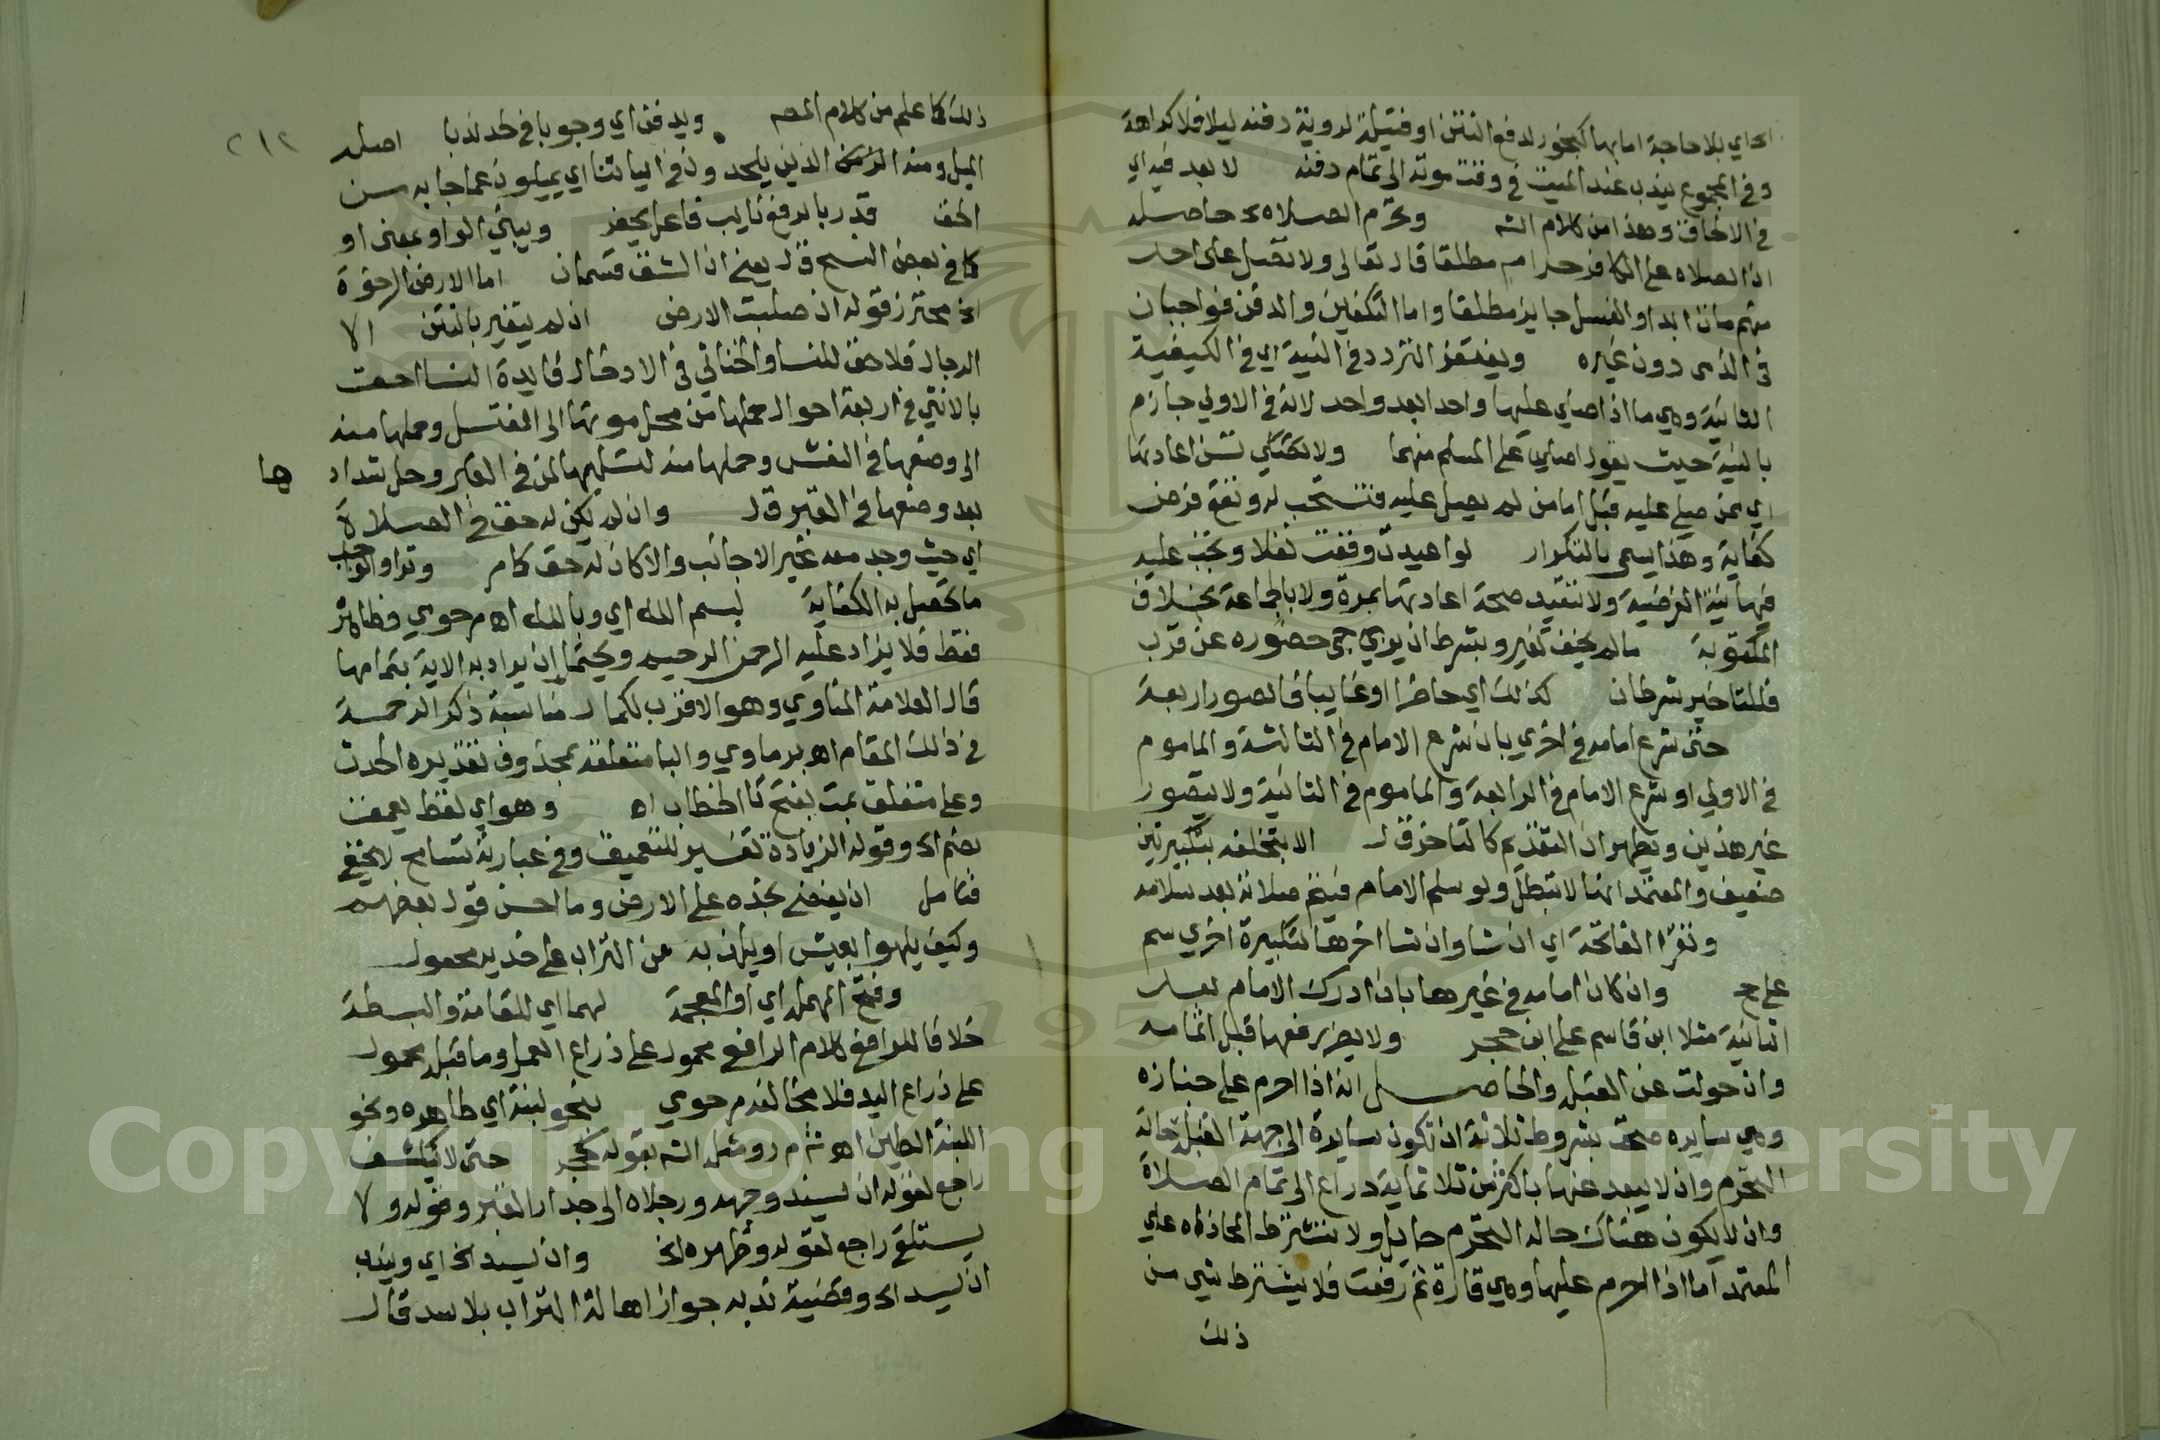 الخ اي بلا حاجة اما بها كبخور لدفع النتن او فتيلة لروية دفنه ليلا فلا كراهة
وفي المجموع يندب عند الميت في وقت موته الى تمام دفنه لا بعد فيه اي
في الالحاق وهذا من كلام الشه وتحرم الصلاه الخ حاصله
ان الصلاه على الكافر حرام مطلقا قال تعالى ولا تصل على احد
منهم مات ابدا والغسل جايز مطلقا واما التكفين والدفن فواجبان
في الذمي دون غيره ويغتفر التردد في النية اي في الكيفية
الثانية وهي ما اذا صلي عليها واحدا بعد واحد لانه في الاولي جازم
بالنية حيث يقول اصلي على المسلم منهما ولا تسن اعادتها
اي ممن صلي عليه قبل اما من لم يصل عليه فتستحب له وتقع فرض
كفاية وهذا يسمى بالتكرار لو اعيدت وقعت نفلا وتجب عليه
فيها نية الفرضية ولا تتقيد صحة اعادتها بمرة ولا بالجماعة بخلاف
المكتوبة ما لم يخف تغير وبشرط ان يرجى حضوره عن قرب
فللتاخير شرطان كذلك اي حاضرا او غايبا فالصور اربعة
حتى شرع امامه في اخري بان شرع الامام في الثالثة والماموم
في الاولي او شرع الامام في الرابعة والماموم في الثانية ولا يتصور
غير هذين ويظهر ان التقديم كالتاخر ق ل الا بتخلفه بتكبيرتين
ضعيف والمعتمد انها لا تبطل ولو سلم الامام فيتم صلاته بعد سلامه
وتقرا الفاتحة اي ان شا وان شا اخرها لتكبيرة اخري سم
على ج وان كان امامه في غيرها بان ادرك الامام بعد
الثانية مثلا ابن قاسم على ابن حجر ولا يضر رفعها قبل اتمامه
وان حولت عن القبلة والحاصل انه اذا احرم على جنازه
وهي سايره صحت بشروط ثلاثة ان تكون سايرة الى جهة القبلة حالة
التحرم وان لا يبعد عنها باكثر من ثلاثماية ذراع الى تمام الصلاة
وان لا يكون هناك حالة التحرم حايل ولا تشترط المحاذاه علي
المعتمد اما اذا احرم عليها وهي قارة ثم رفعت فلا يشترط شي من
ذلك
ذلك كما علم من كلام المصه ويدفن اي وجوبا في لحد ندبا اصله
الميل ومنه ان الذين يلحدون في اياتنا اي يميلون عما جا به من
الحق قدر بالرفع نايب فاعل يحفر ويبني الواو بمعنى او
كما في بعض النسخ ق ل يعني ان الشق قسمان اما الارض الرخوة
الخ محترز قوله ان صلبت الارض ان لم يتغير بالنتن الا
الرجال فلا حق للنسا والخناثي في الادخال فايدة النسا احق
بالانثي في اربعة احوال حملها من محل موتها الى المغتسل وحملها منه
الى وضعها في النعش وحملها منه لتسليمها لمن في القبر وحل شداد
ها
بعد وضعها في القبر ق ل وان لم يكن له حق في الصلاة
اي حيث وجد معه غير الاجانب والا كان له حق كما مر وترا والواجب
ما تحصل به الكفاية بسم الله اي وبالله اه مرحومي وظاهر
فقط فلا يزاد عليه الرحمن الرحيم ويحتمل ان يراد به الاية بتمامها
قال العلامة المناوي وهو الاقرب لكمال مناسبة ذكر الرحمة
في ذلك المقام اه برماوي والبا متعلقة بمحذوف تقديره الحدت
وعلى متعلق بمت بفتح تا الخطاب اه وهو اي لفظ يعمق
بضم الخ وقوله الزيادة تفسير للتعميق وفي عبارته تسامح لا يخفي
فتامل ان يفضي بخده على الارض وما احسن قول بعضهم
وكيف يلهوا بعيش او يلذ به من التراب على خديه محمول
وفتح المهملة اي او المعجمة لهما اي للقامة والبسطة
خلافا للرافعي كلام الرافعي محمول على ذراع العمل وما قبله محمول
على ذراع اليد فلا مخالفة مرحومي بنحو لبنة اي طاهره ونحو
اللبنة الطين اه ش م ر ومثل الشه بقوله كحجر حتى لا ينكشف
راجع لقوله ان يسند وجهه ورجلاه الى جدار القبر وقوله ولا
يستلقي راجع لقوله وظهره الخ وان يسد الخ اي ويندب
ان يسد الخ وقضية ندبه جواز اهالة التراب بلا سد قال
٢١٢